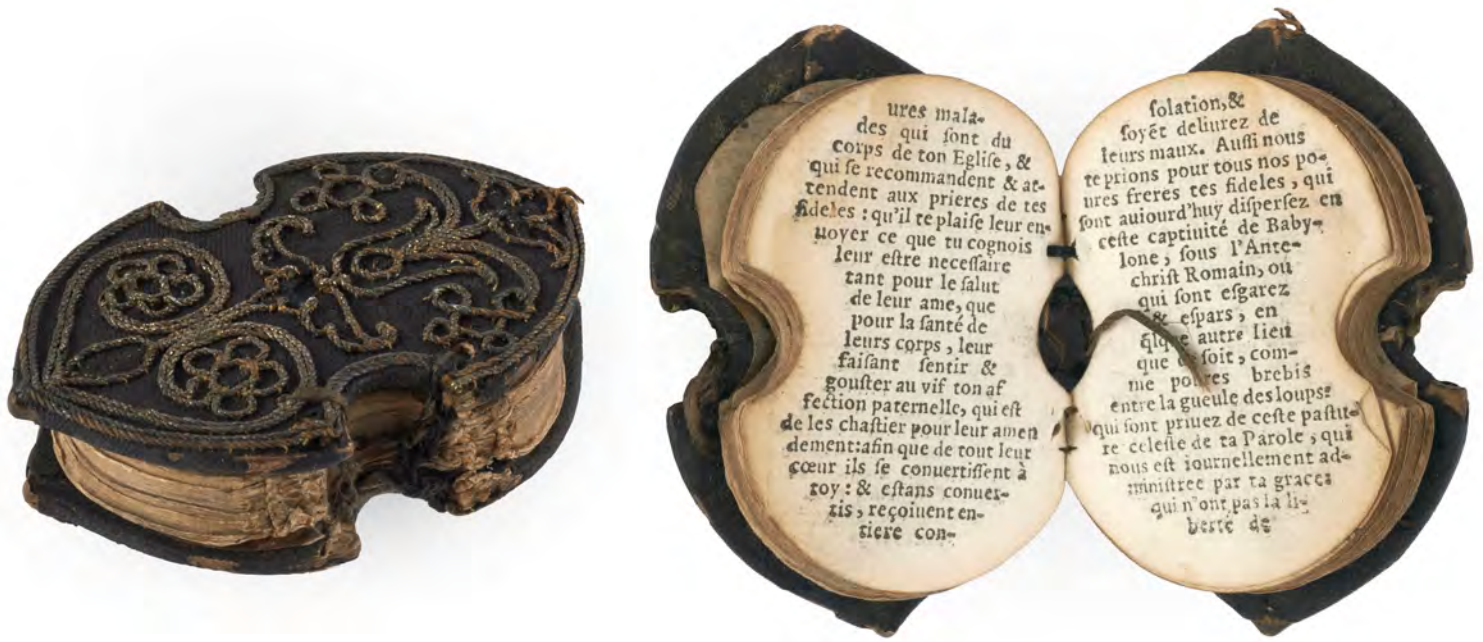 ures mala-
des qui ſont du
corps de ton Egliſe, &
qui ſe recommandent & at-
tendent aux prieres de tes
fideles : qu'il te plaiſe leur en-
uoyer ce que tu cognois
leur eſtre neceſſaire
tant pour le ſalut
de leur ame, que
pour la ſanté de
leurs corps, leur
faiſant ſentir &
gouſter au vif ton af
fection paternelle, qui eſt
de les chaſtier pour leur amen
dement: afin que de tout leur
cœur ils ſe conuertiſſent à
toy : & eſtans conuer-
tis, reçoiuent en-
tiere con-
ſolation, &
ſoyẽt deliurez de
leurs maux. Auſſi nous
te prions pour tous nos po-
ures freres tes fideles, qui
ſont auiourd'huy diſperſez en
ceſte captiuité de Baby-
lone, ſous l'Ante-
chriſt Romain, ou
qui ſont eſgarez
& eſpars, en
autre lieu
que ſoit, com-
me poures brebis
entre la gueule des loups:
qui ſont priuez de ceſte paſtu-
re celeſte de ta Parole, qui
nous eſt iournellement ad-
miniſtree par ta grace:
qui n'ont pas la li-
berté de